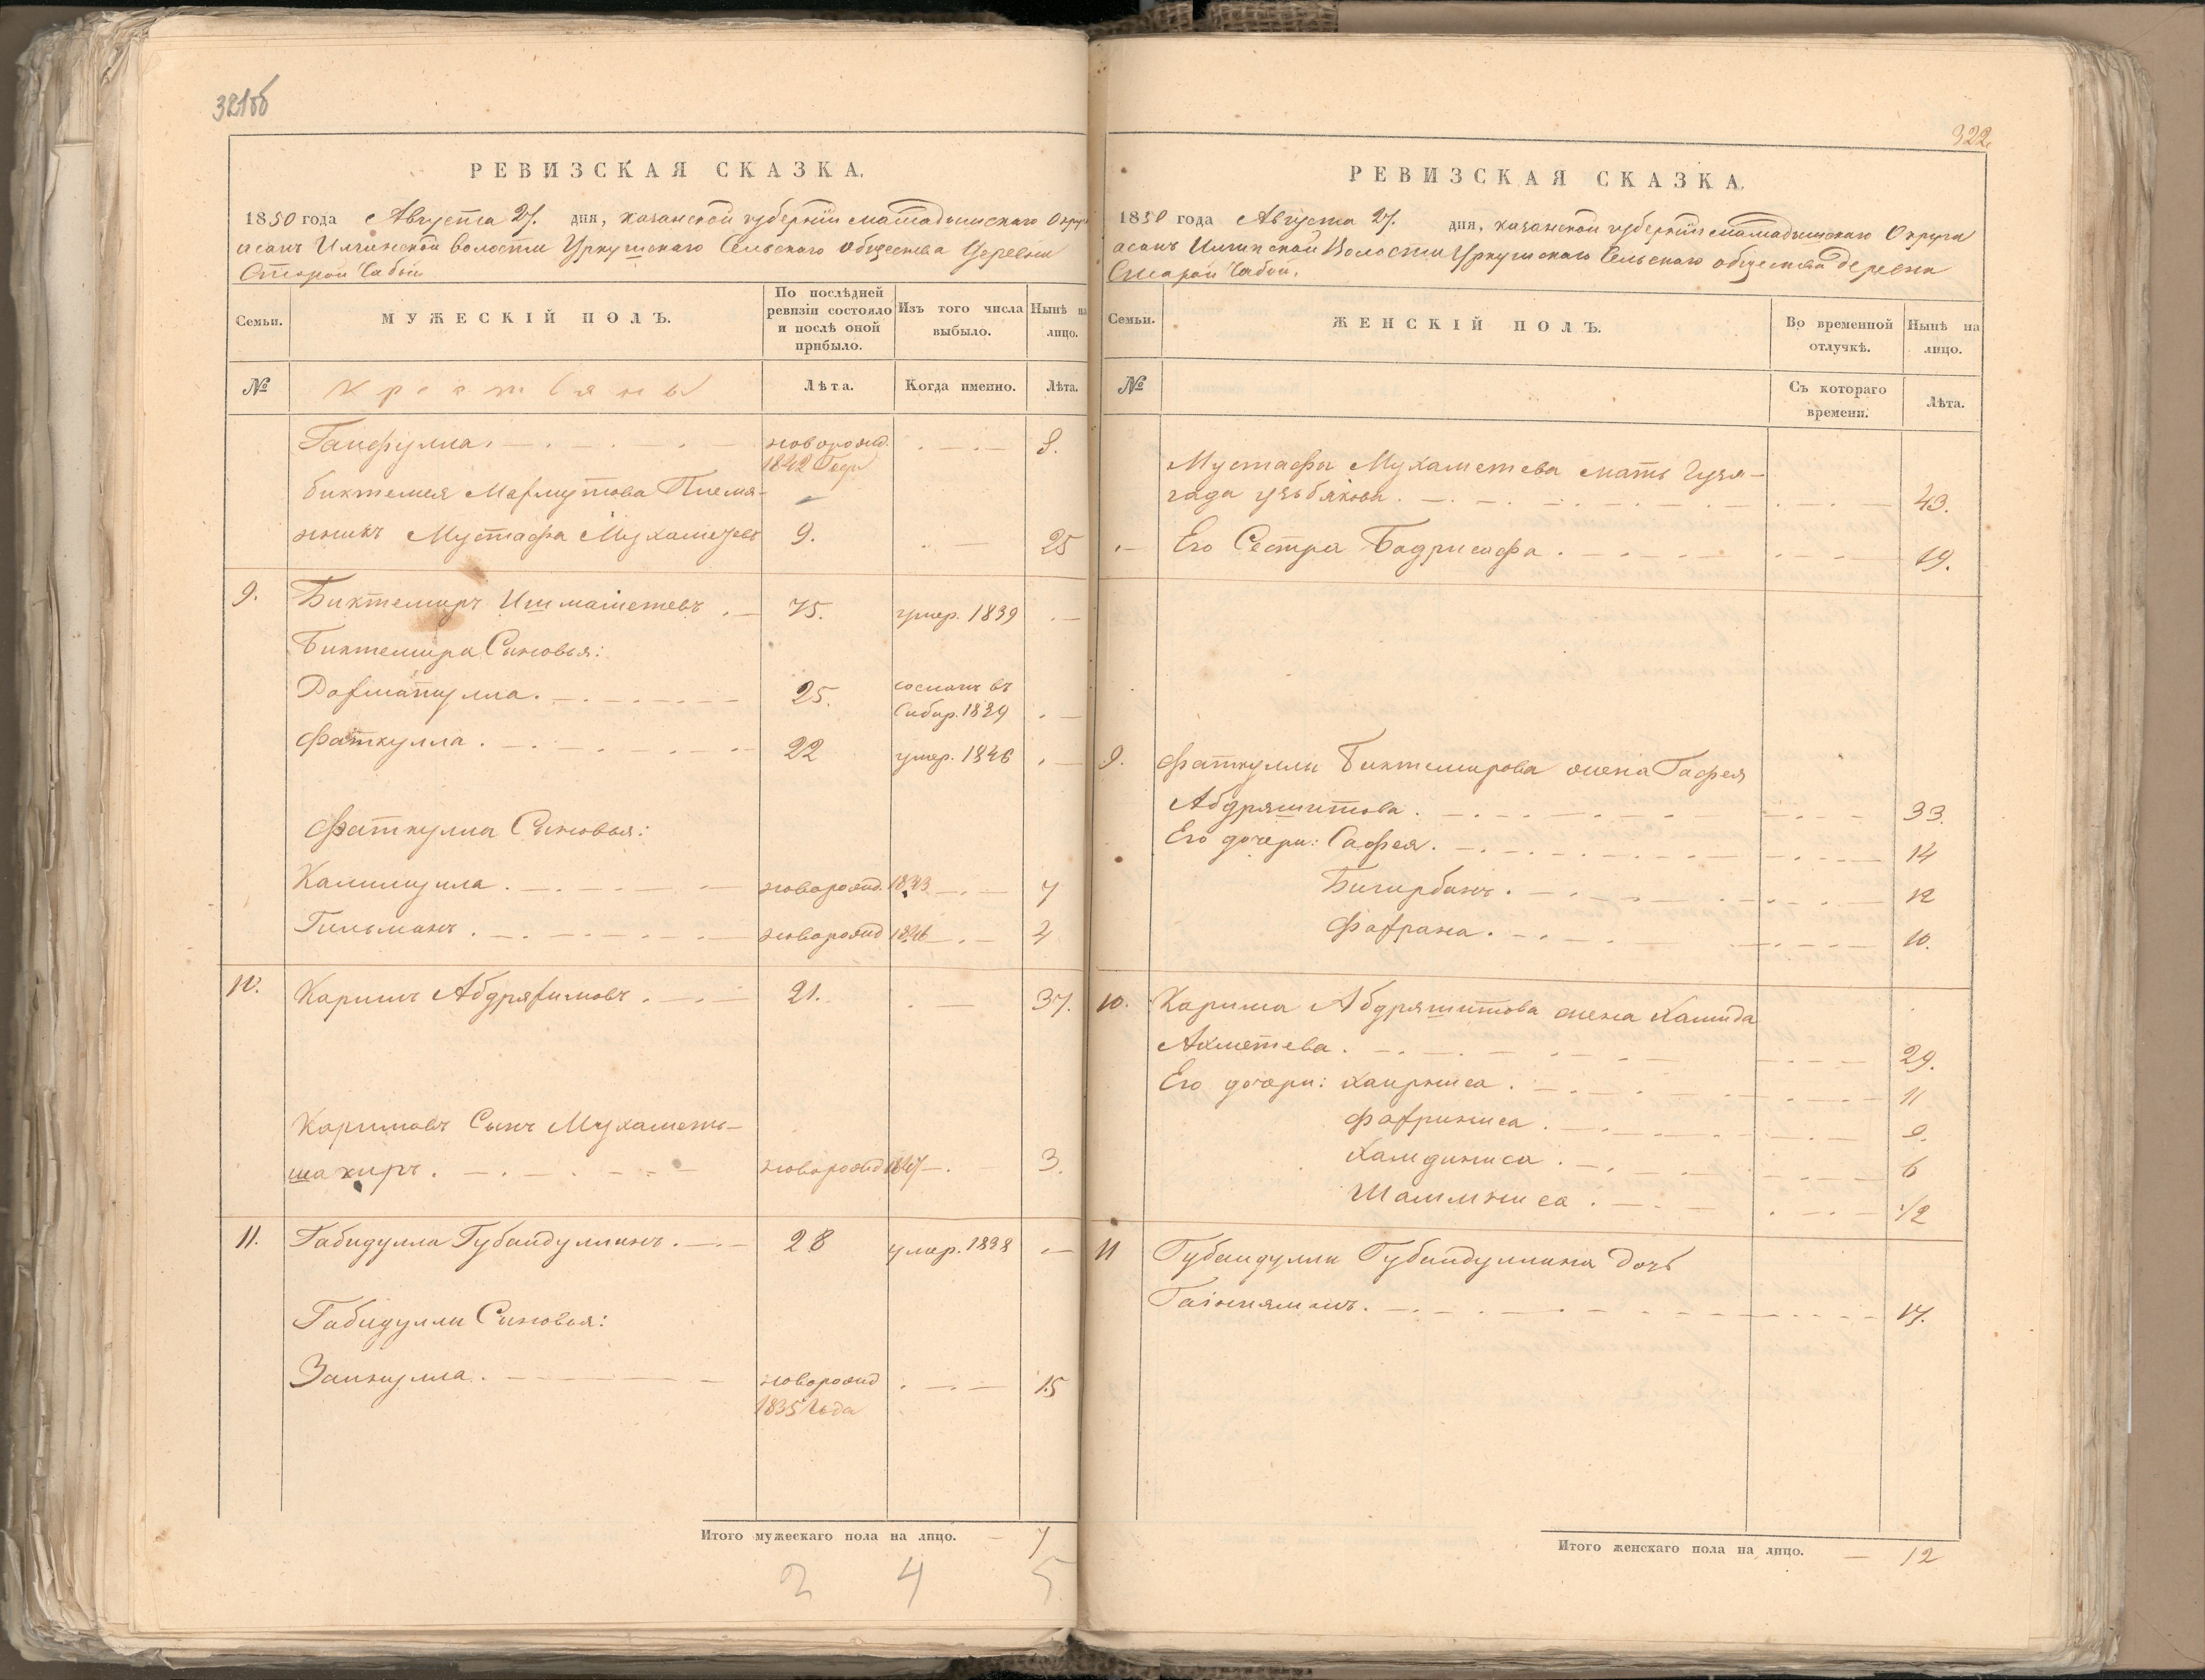 321об
РЕВИЗСКАЯ СКАЗКА.
1850 года Августа 27. дня, казанской губернiи мамадышскаго Округа
асанъ Илгинской волости Уркушскаго Сельскаго общества деревни
Старой Чабьи
Семьи. МУЖЕСКІЙ ПОЛЪ. По послѣдней ревизіи состояло и послѣ оной прибыло. Изъ того числа выбыло. Нынѣ на лицо.
№ Крестьяны Лѣта. Когда именно. Лѣта.
новорожд.
1842 Года 8.
Племя-
нникъ Мустафа Мухаметевъ 9. 25
9. Биктемиръ Ишмаметевъ 75. умер. 1839
Биктемира Сыновья:
25. сосланъ въ
Сибир. 1839
Фаткулла. 22 умер. 1846
Фаткулла Сыновья:
Калимулла. новорожд. 1843 7
Гильманъ. новорожд 1846 4
10. Каримъ Абдряхимовъ. 21. 37.
Каримовъ Сынъ Мухаметь-
шакиръ. новорожд 1847 3.
11. Габидулла Губайдуллинъ. 28 умер. 1838
Габидуллы Сыновья:
Заинулла. новорожд 15
1835 Года
Итого мужескаго пола на лицо. 7
2 4 5
322
РЕВИЗСКАЯ СКАЗКА.
1850 года Августа 27. дня, казанской губернiи мамадышскаго Округа
асанъ Илгинской Волости Уркушскаго Сельскаго общества деревни
Старой Чабьи.
Семьи. ЖЕНСКІЙ ПОЛЪ. Во временной отлучкѣ. Нынѣ на лицо.
№ Съ котораго времени. Лѣта.
Мустафы Мухаметева мать Гузя-
43.
Его Сестра Бадрисафа. 19.
9. Фаткуллы Биктемирова жена Гафея
Абдряшитова. 33.
Его дочери: Сафея. 14
Бигирбанъ. 12
Фахрана. 10.
10. Карима Абдряшитова жена Хамида
Ахметева. 29.
Его дочери: Хаирниса. 11
Фахриниса. 9.
Хамдиниса. 6
Шамсниса. 1/2
11 Губайдуллы Губайдуллина дочь
17.
Итого женскаго пола на лицо. 12